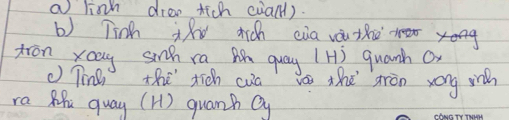 a) Tính diện tích của (H).
b) Tính thể tích của vật thể
tròn xoay sinh ra khi quay (H) quanh Ox
c) Tính thể tích của vật thể tròn xong sinh
ra khi quay (H) quanh Oy
CÔNG TY TNHH